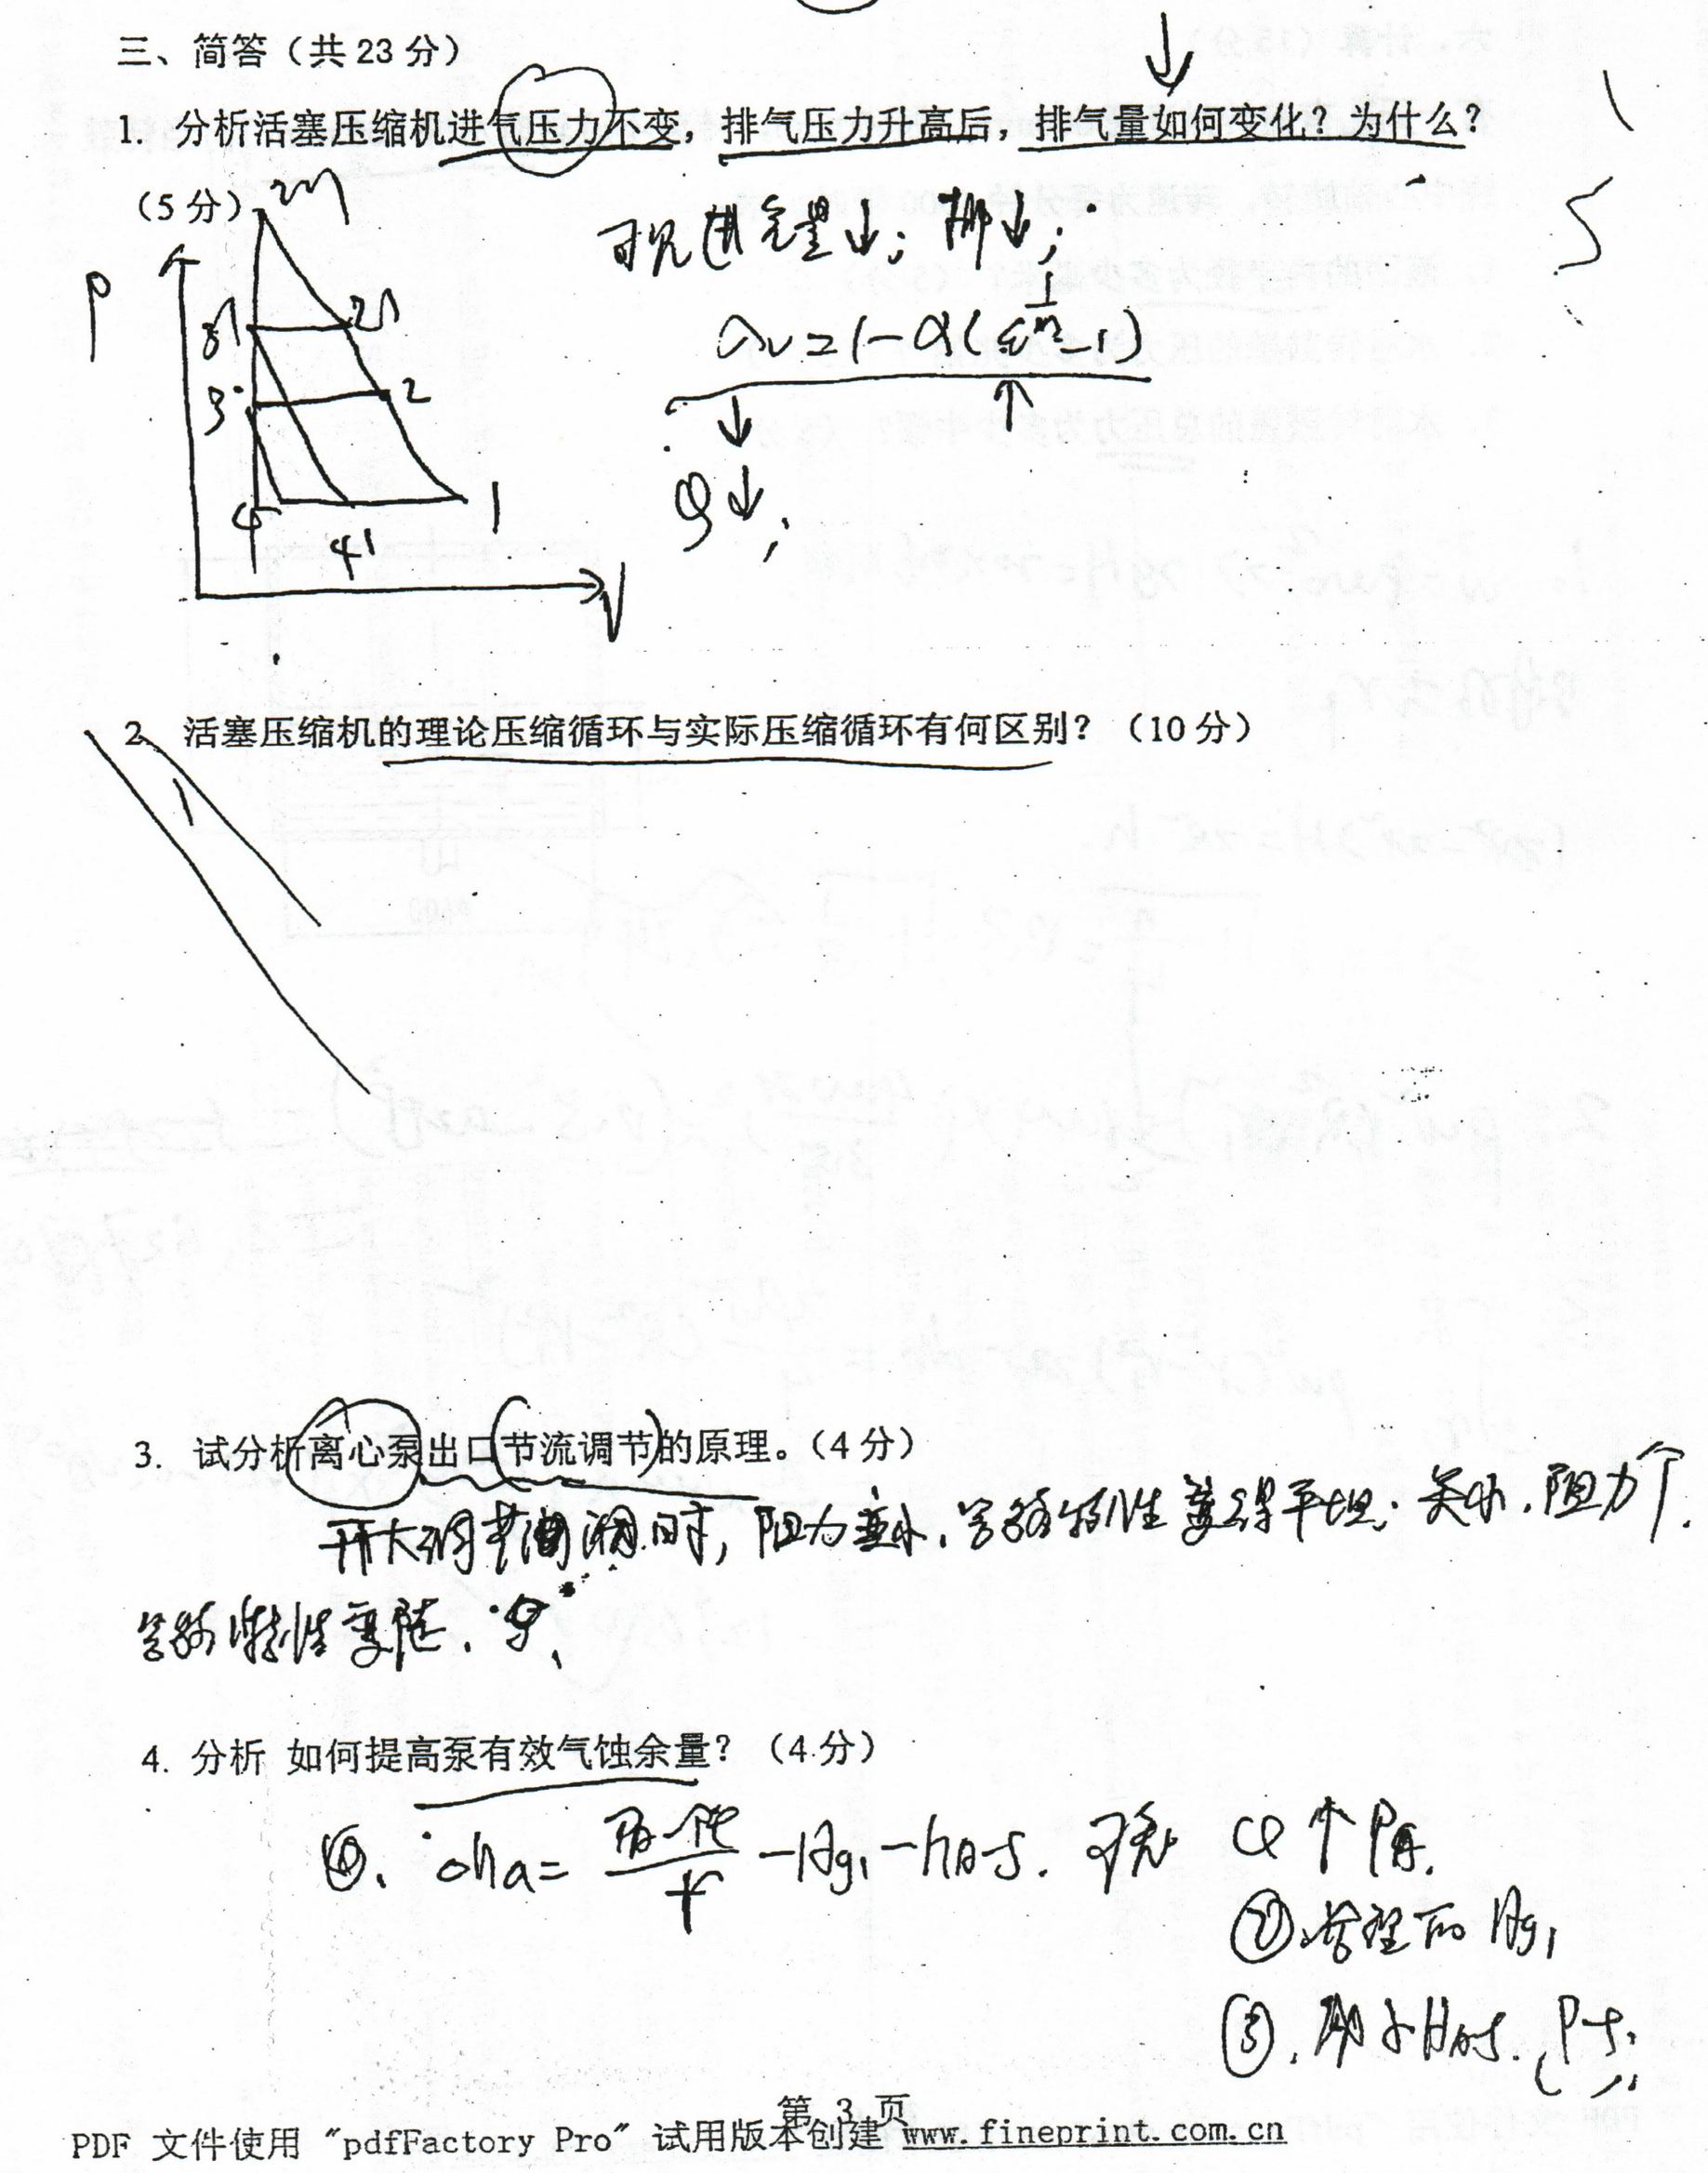 三、简答（共 23 分）
1. 分析活塞压缩机进气压力不变，排气压力升高后，排气量如何变化？为什么？
（5 分）
可见进气量↓；排↓；
P
2"
3'
2'
3
2
4
4'
1
V
λv=1-α(ε^(1/m)-1)
↓ ↑
Q↓；
2、活塞压缩机的理论压缩循环与实际压缩循环有何区别？（10 分）
3. 试分析离心泵出口节流调节的原理。（4 分）
开大调节阀时，阻力变小，管路特性变得平坦；关小，阻力↑.
管路特性变陡.
4. 分析 如何提高泵有效气蚀余量？（4 分）
-Hg₁-hA-S. ↑PA.
② Hg₁
③. HA-S.
第 3 页
PDF 文件使用 "pdfFactory Pro" 试用版本创建 www.fineprint.com.cn